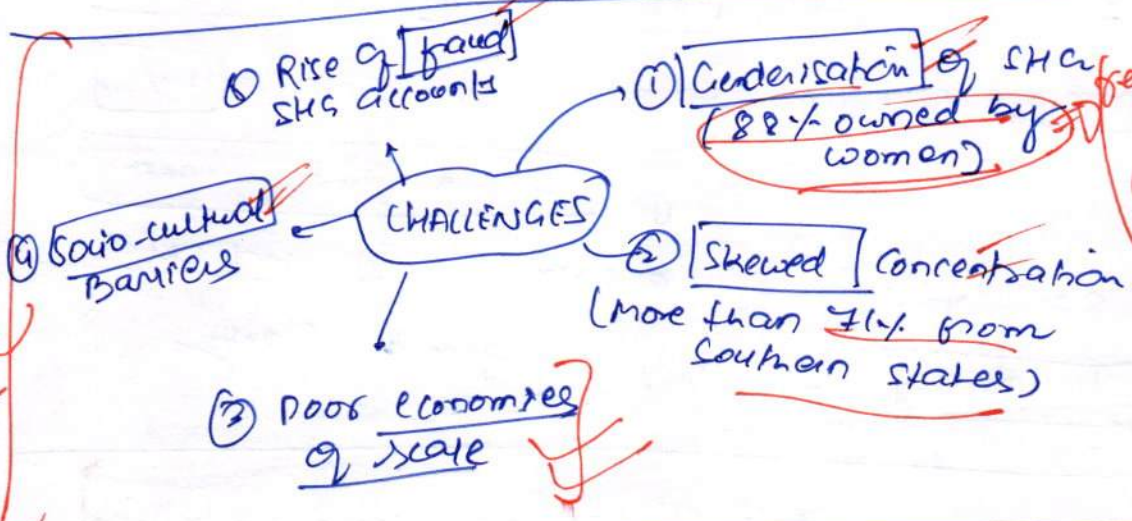 Rise of fraud
SHG accounts
① Genderisation of SHG
(88% owned by
women)
CHALLENGES
④ Socio-cultural
Barriers
② Skewed concentration
(More than 71% from
Southern states)
③ Poor economies
of scale